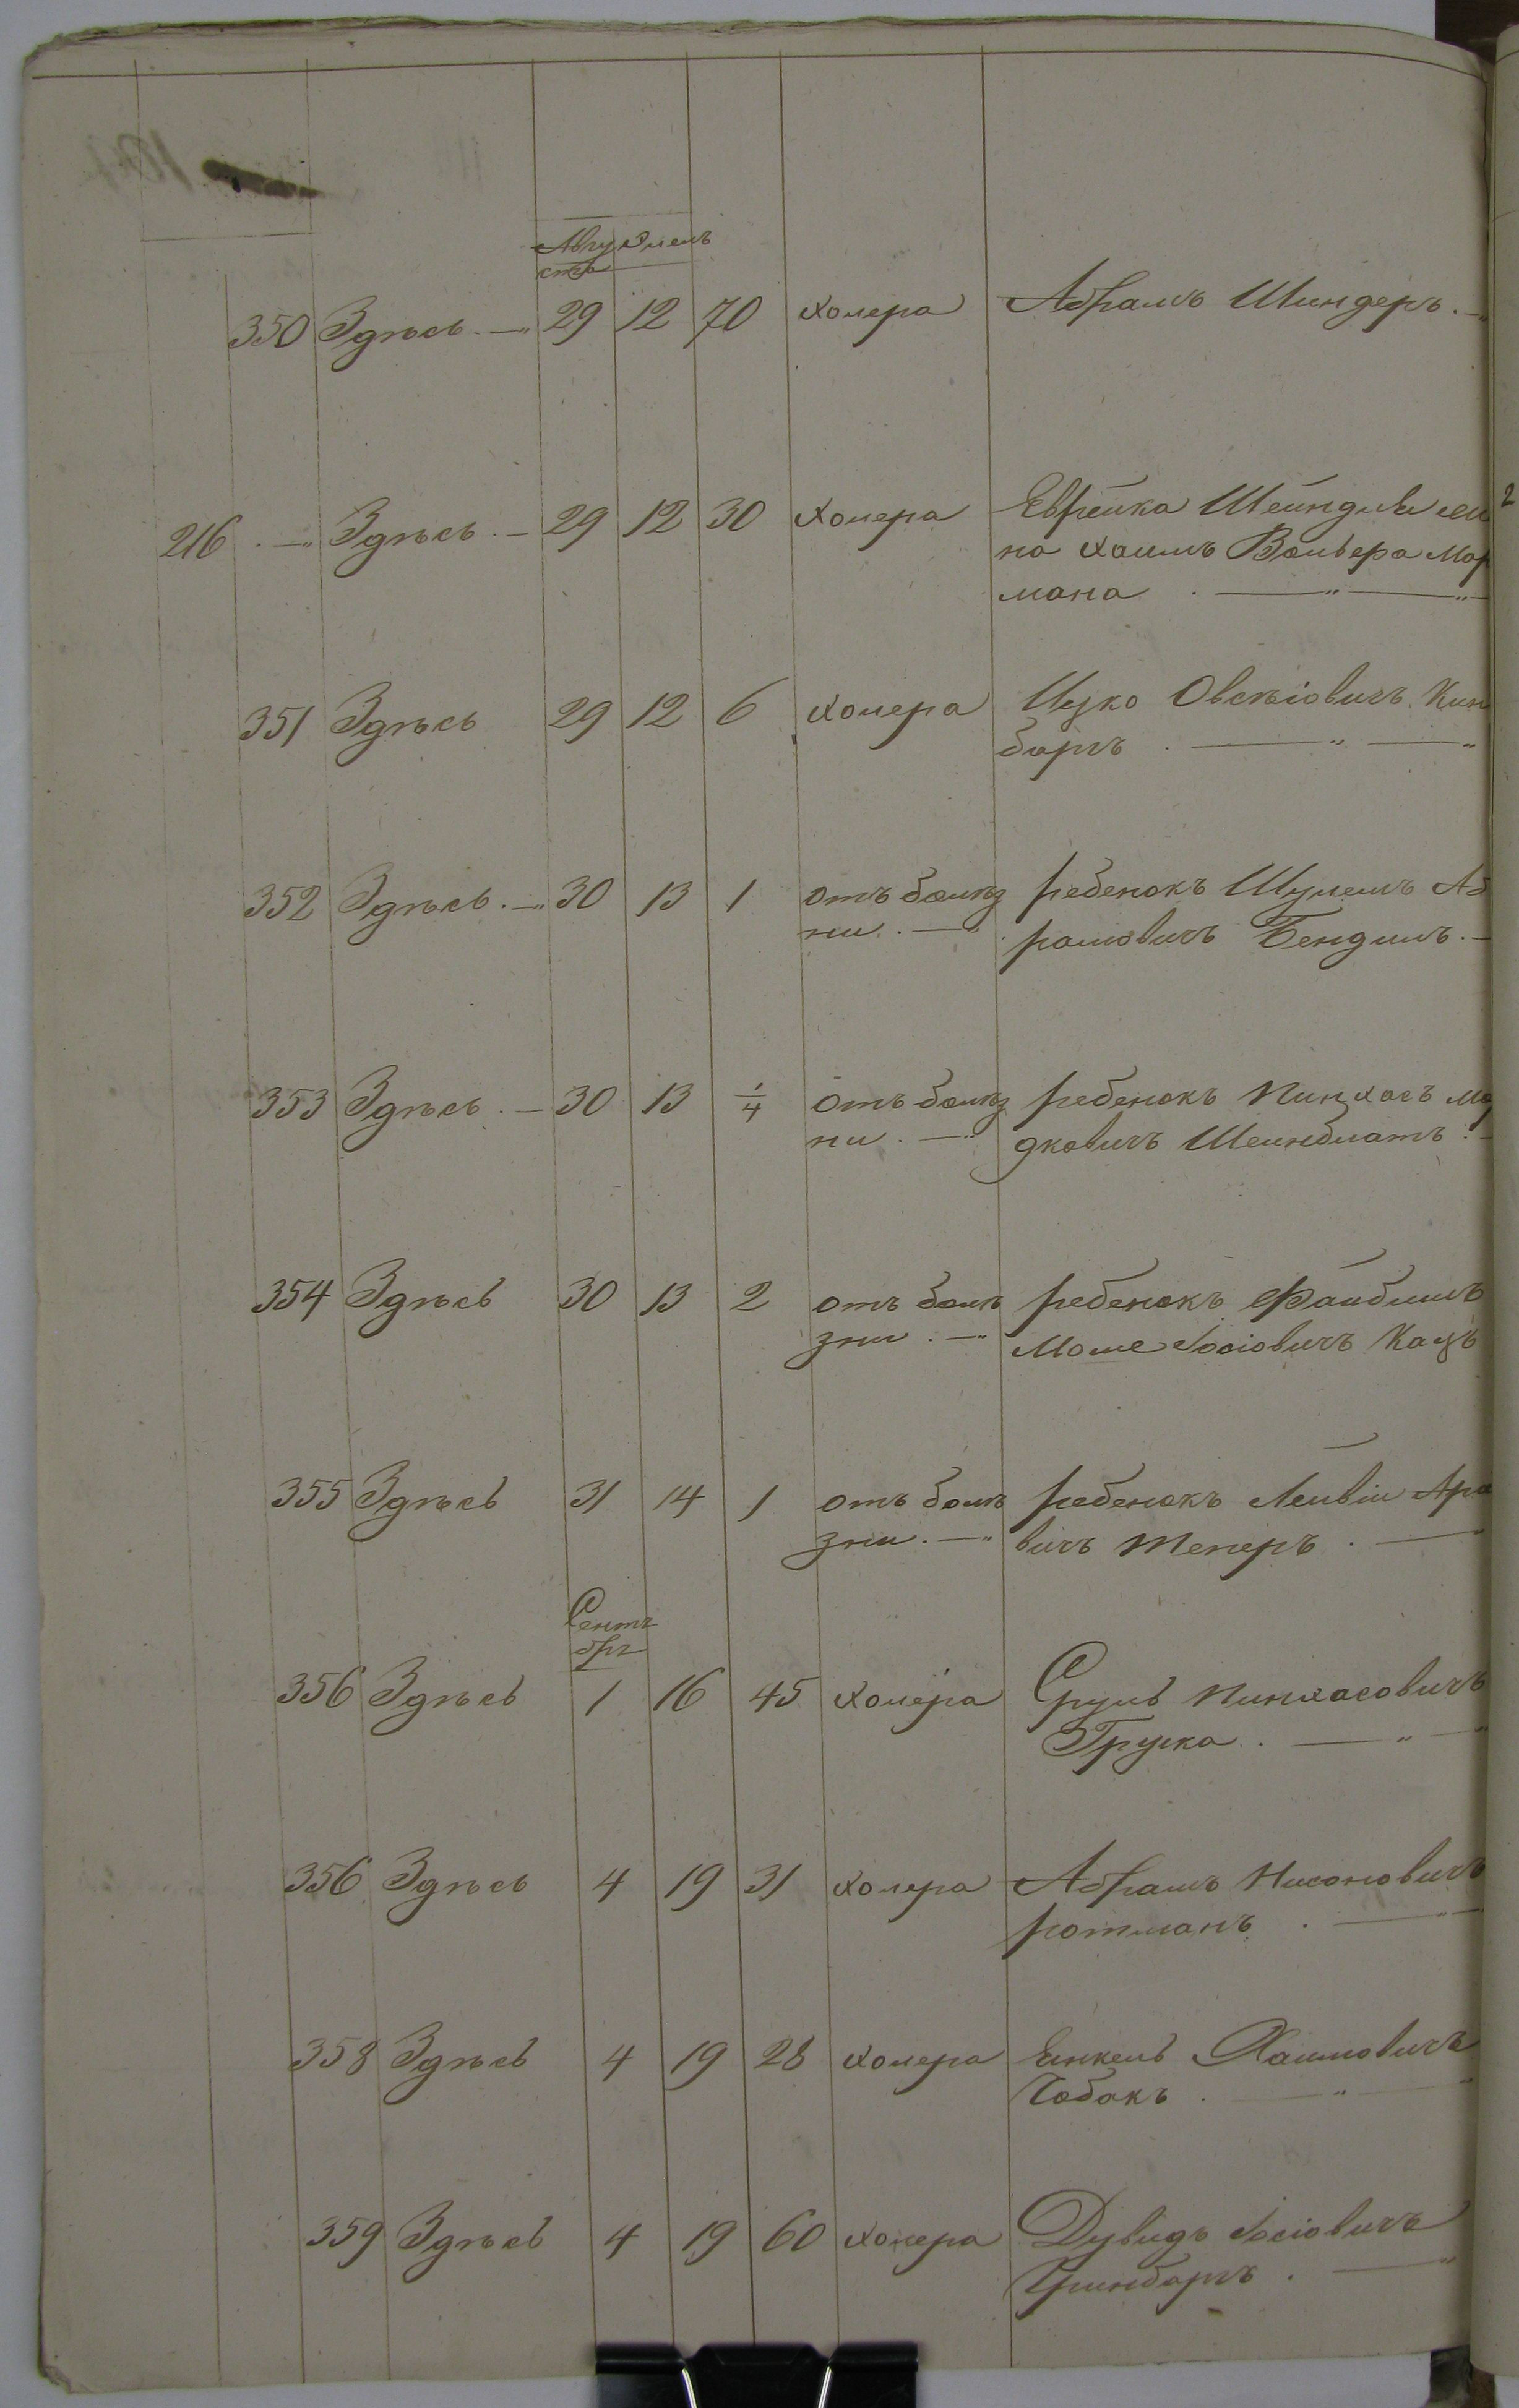 Авгу Элюль
стъ
350 Здѣсь 29 12 70 холера Абрамъ Шиндеръ
216 Здѣсь 29 12 30 холера Еврейка Шейндля
на Хаимъ Вольера Мор
мана
351 Здѣсь 29 12 6 холера Ицко Овсѣіовичъ Кин
боргъ
352 Здѣсь 30 13 1 отъ болѣз ребенокъ Шулемъ Аб
ни рамовичъ Бендитъ
353 Здѣсь 30 13 1/4 отъ болѣз ребенокъ Пинхасъ Мо
ни дковичъ Шейнблатъ
354 Здѣсь 30 13 2 отъ болѣ ребенокъ Файбишъ
зни Моше Іосіовичъ Кацъ
355 Здѣсь 31 14 1 отъ болѣ ребенокъ Лейвіи Аро
зни вичъ Теперъ
Сентя
брь
356 Здѣсь 1 16 45 холера Сруль Пинхасовичъ
Грушка
356 Здѣсь 4 19 31 холера Абрамъ Нисоновичъ
Ротманъ
358 Здѣсь 4 19 28 холера Еинкель Хаимовичъ
Чобакъ
359 Здѣсь 4 19 60 холера Дувидъ Іосіовичъ
Гринборгъ